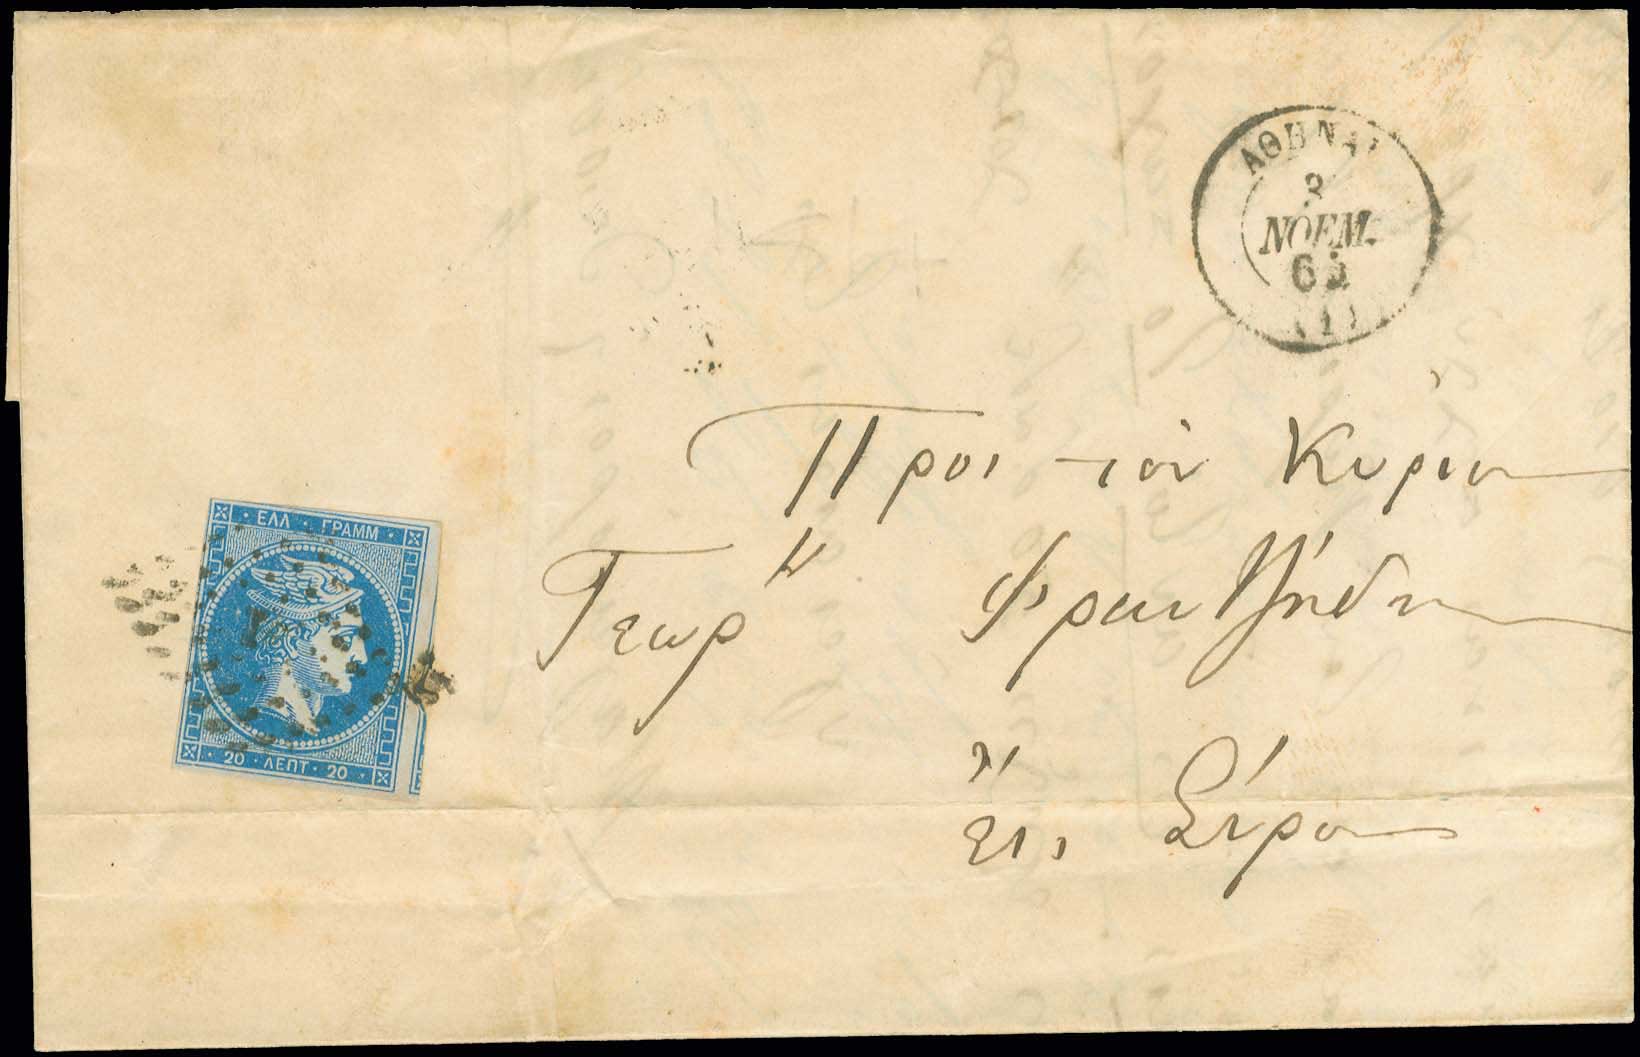 ΑΘΗΝΑΙ
ΝΟΕΜ.
(1)
Προς τον Κύριον
Γεωρ Φραντζήδην
Εις Σύρον
ΕΛΛ · ΓΡΑΜΜ
20 · ΛΕΠΤ · 20